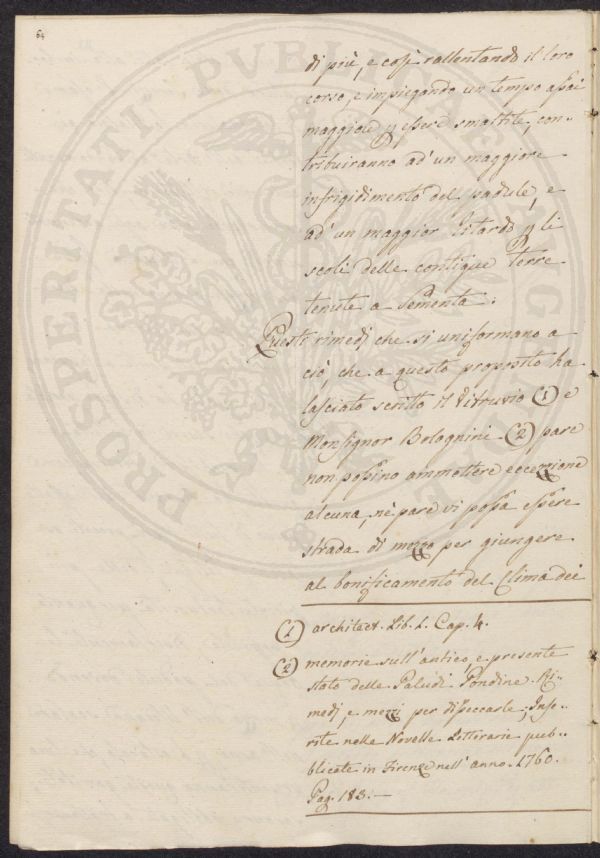 64
di più, e così rallentando il loro
corso, e impiegando un tempo assai
maggiore p essere smaltite, con-
tribuiranno ad' un maggiore
infrigidimento del padule, e
ad' un maggior ritardo p li
scoli delle contigue Terre
tenute a Sementa.
Questi rimedj che si uniformano a
ciò, che a questo proposito ha
lasciato scritto il Vitruvio (1) e
Monsignor Bolognini (2) pare
non possino ammettere eccezzione
alcuna, nè pare vi possa essere
strada di mezzo per giungere
al bonificamento del Clima dei
(1) architect. Lib. 1. Cap. 4.
(2) memorie sull'antico, e presente
stato delle Paludi Pondine. Ri-
medj, e mezzi per disseccarle; Inse-
rite nelle Novelle Letterarie pub-
blicate in Firenze nell'anno. 1760.
Pag. 183. —
PROSPERITATI PUBLICAE AUGENDAE